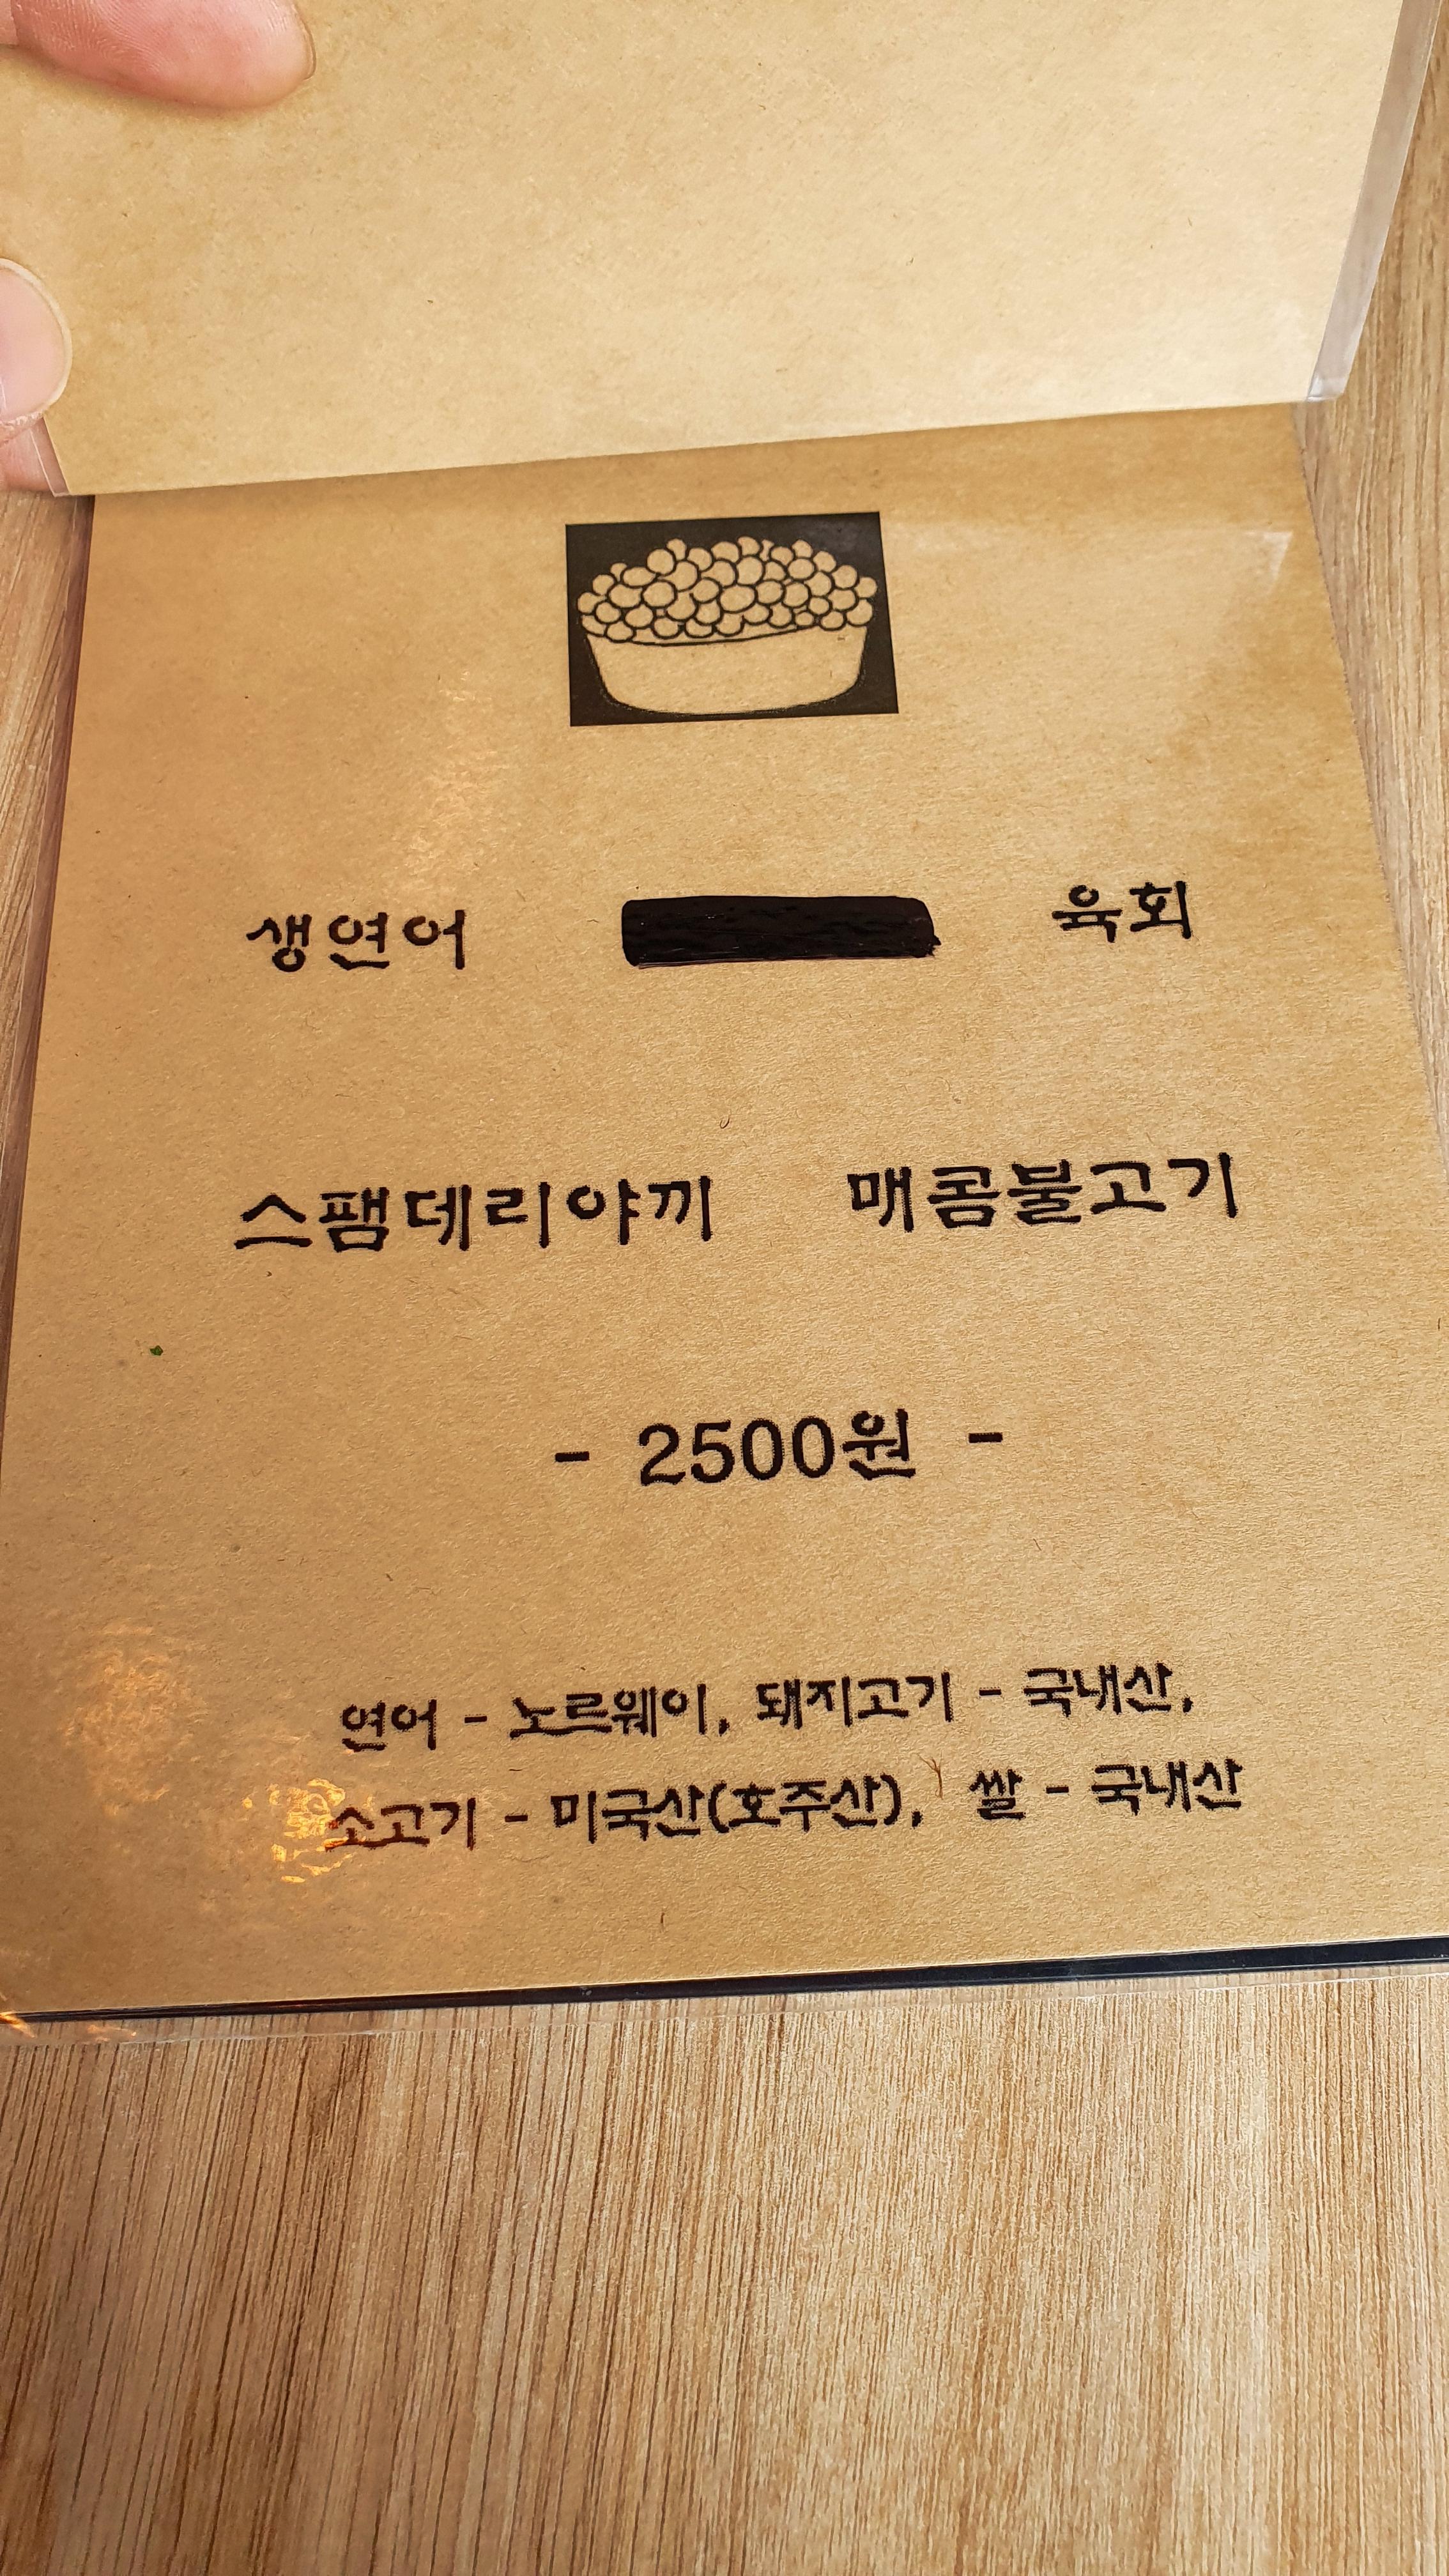 생연어 육회
스팸데리야끼 매콤불고기
- 2500원 -
연어 - 노르웨이, 돼지고기 - 국내산,
소고기 - 미국산(호주산), 쌀 - 국내산